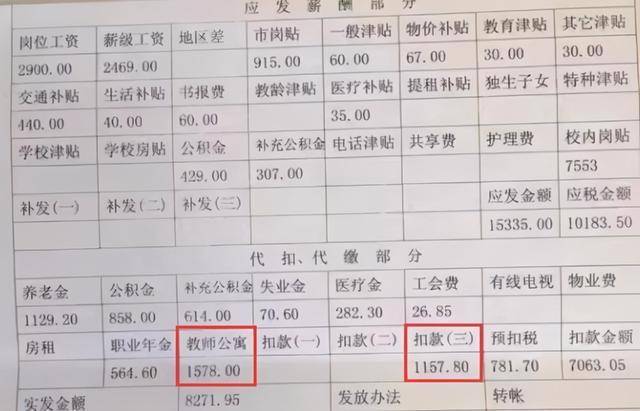 应发薪酬部分
岗位工资 薪级工资 地区差 市岗贴 一般津贴 物价补贴 教育津贴 其它津贴
2900.00 2469.00 915.00 60.00 67.00 30.00 30.00
交通补贴 生活补贴 书报费 教龄津贴 医疗补贴 提租补贴 独生子女 特种津贴
440.00 40.00 60.00 35.00
学校津贴 学校房贴 公积金 补充公积金 电话津贴 共享费 护理费 校内岗贴
429.00 307.00 7553
补发(一) 补发(二) 补发(三) 应发金额 应税金额
15335.00 10183.50
代扣、代缴部分
养老金 公积金 补充公积金 失业金 医疗金 工会费 有线电视 物业费
1129.20 858.00 614.00 70.60 282.30 26.85
房租 职业年金 教师公寓 扣款(一) 扣款(二) 扣款(三) 预扣税 扣款金额
564.60 1578.00 1157.80 781.70 7063.05
实发金额 8271.95 发放办法 转帐